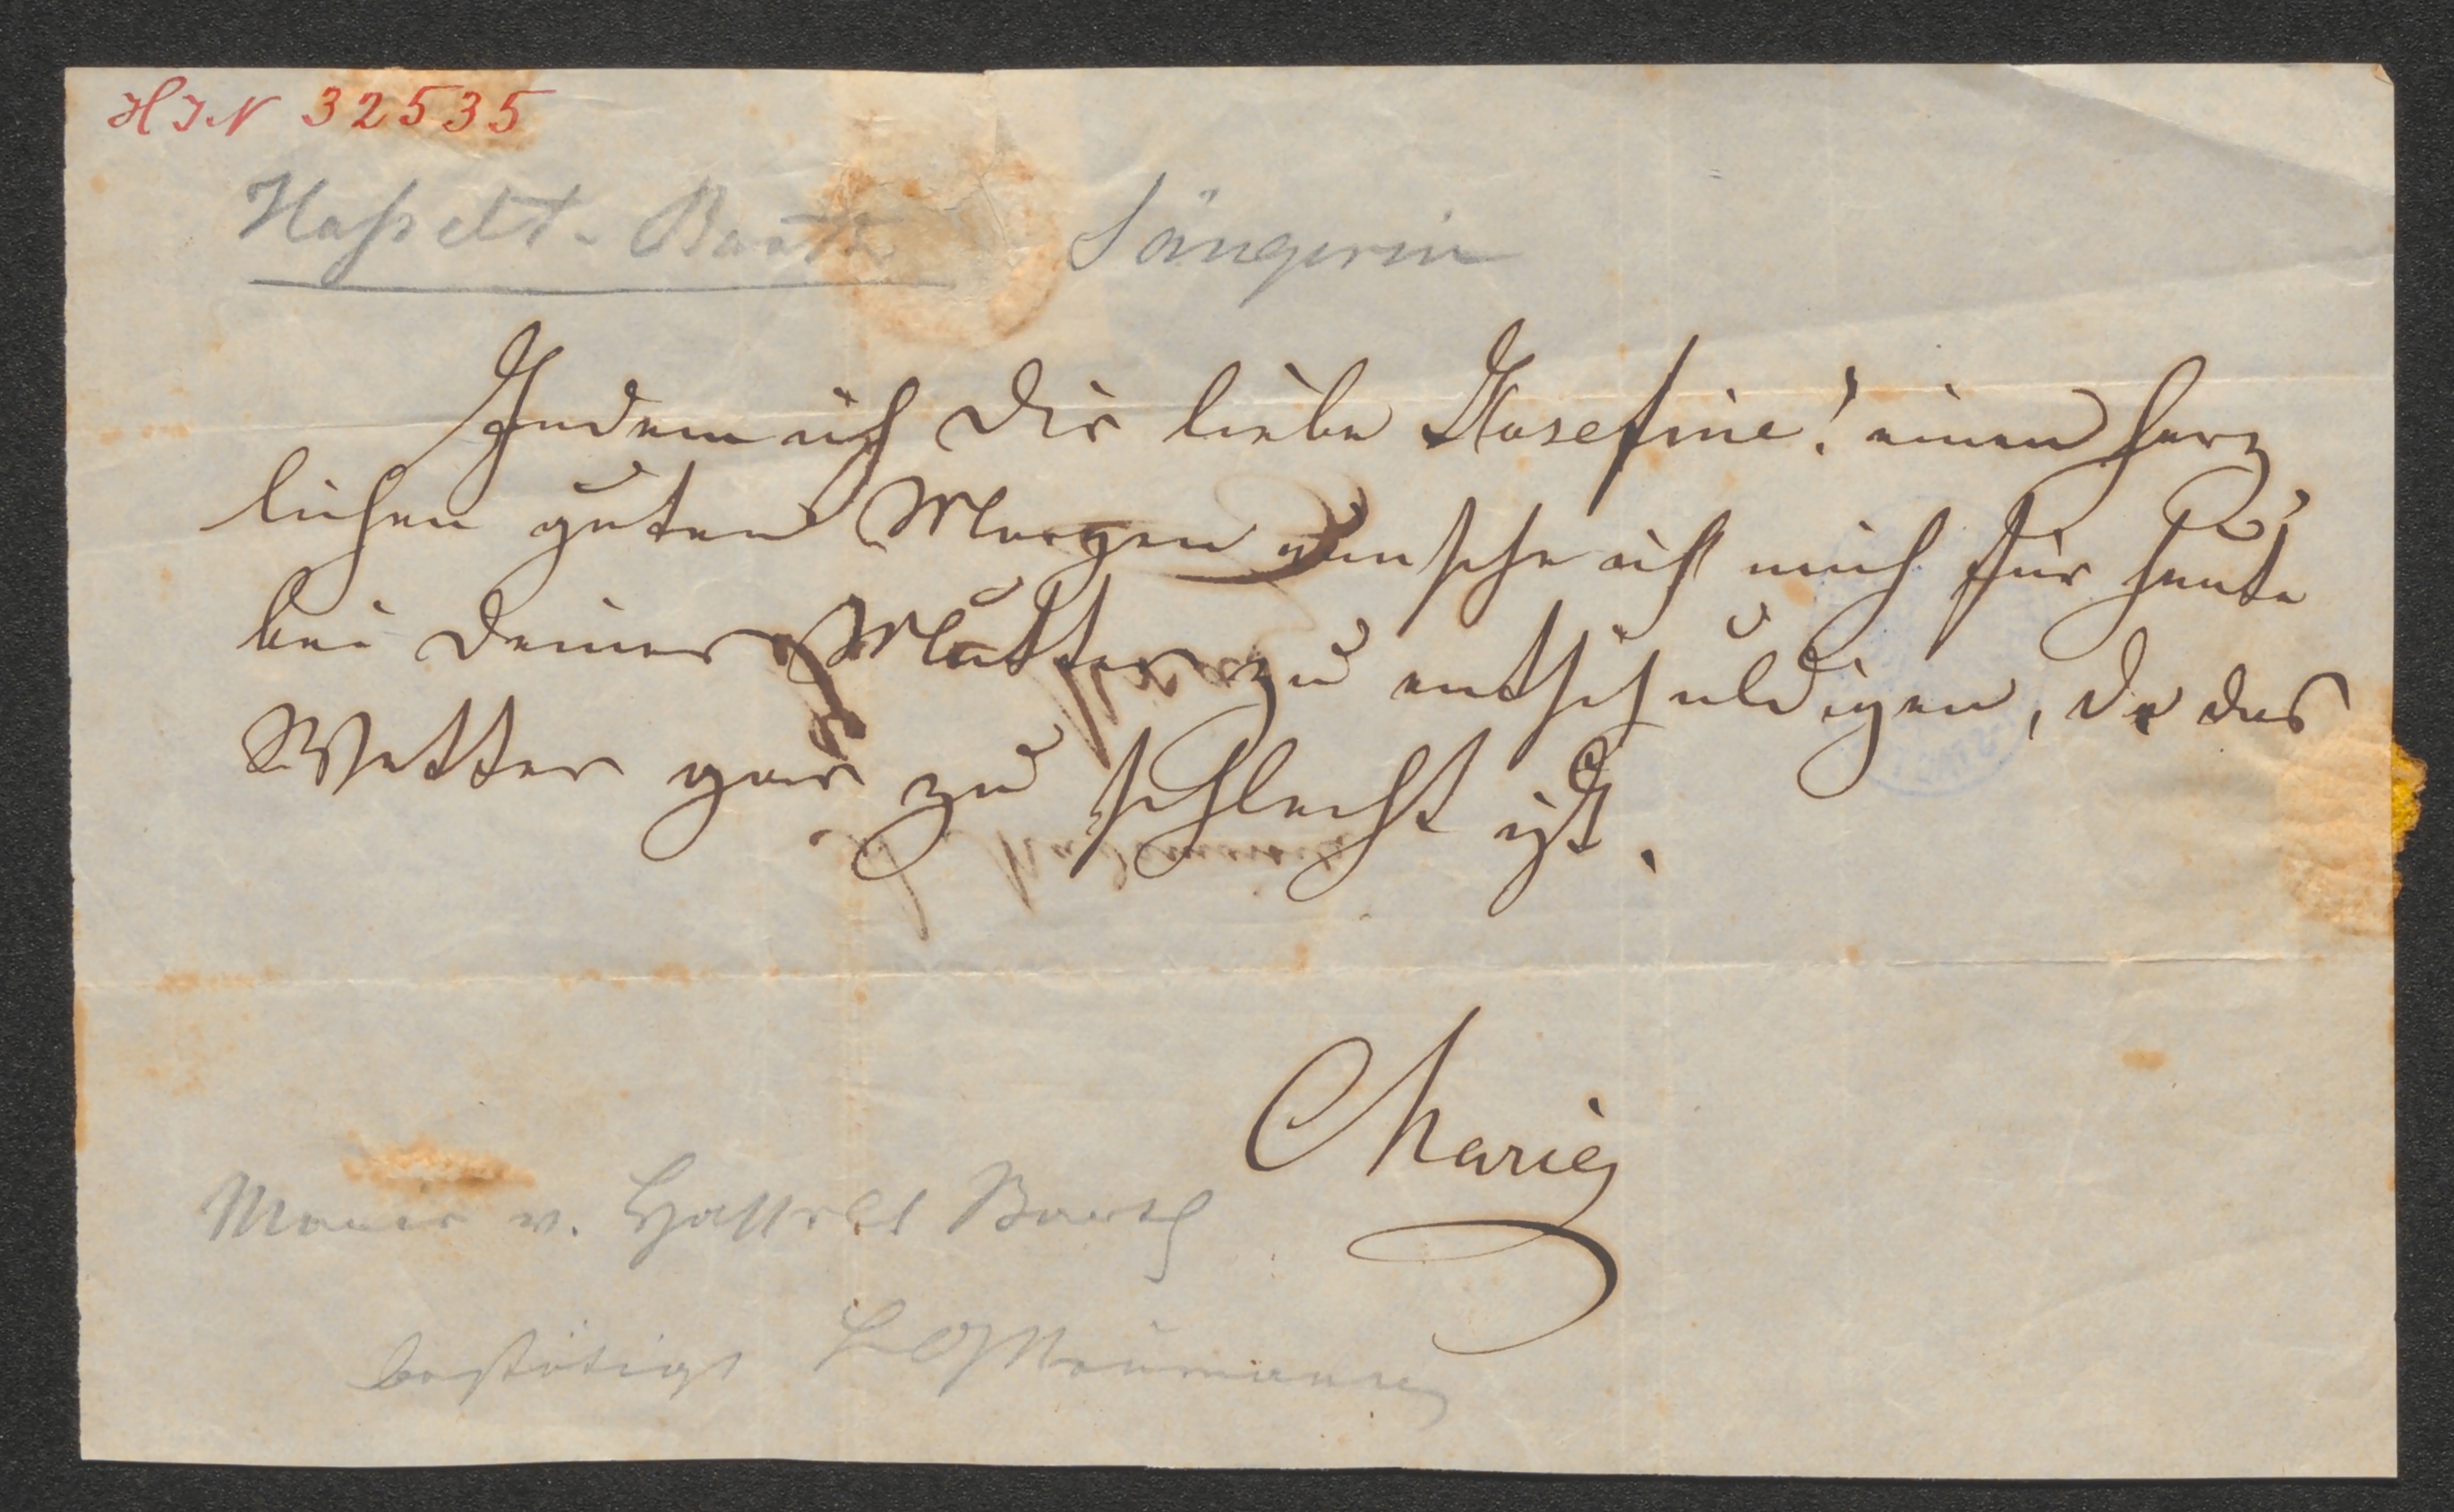 HIN 32535
Haßelt-Barth Sängerin
Indem ich Dir liebe Josefine! einen herz
lichen guten Morgen wünsche ich mich für heute
bei Deiner Mutter zu entschuldigen, da das
Wetter gar zu schlecht ist.
Marie
Marie v. Hasselt Barth
bestätigt